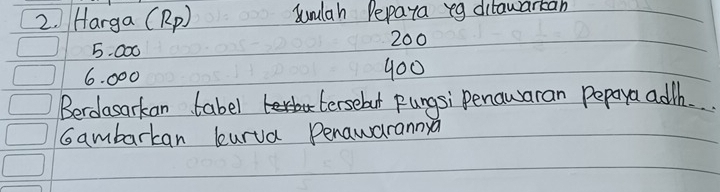 2. Harga (Rp) Jumlah Pepaya yg ditawarkan
5.000 200
6.000 400
Berdasarkan tabel tersebut Fungsi penawaran pepaya adlh....
Gambarkan kurva penawarannya